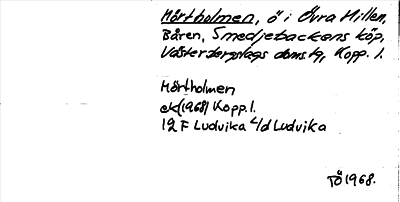 Mörtholmen, ö i Övra Hillen,
Båren, Smedjebackens köp,
Västerbergslags doms.tg, Kopp. l.
Mörtholmen
ek(1968) Kopp. l.
12 F Ludvika c/d Ludvika
TÖ 1968.